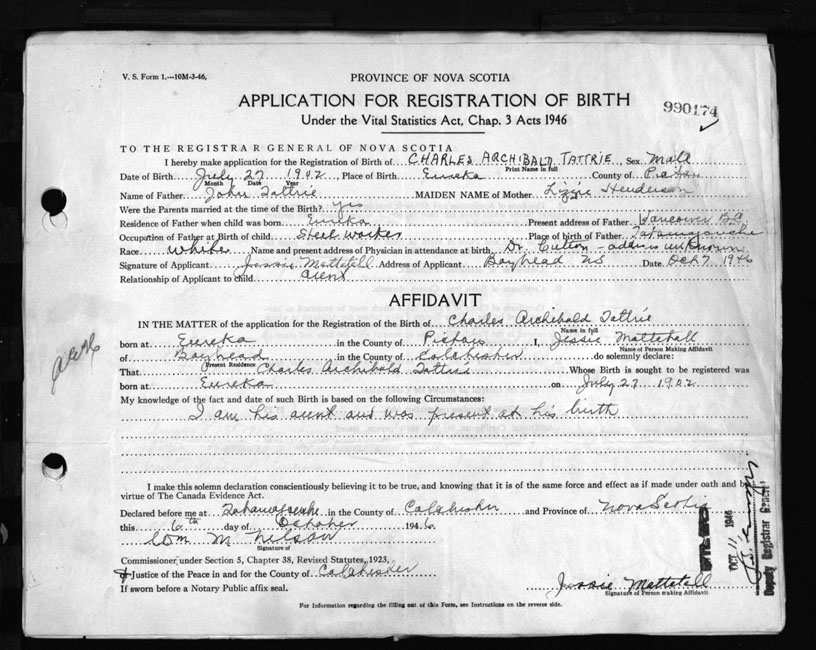 V. S. Form 1.—10M-3-46.
PROVINCE OF NOVA SCOTIA
APPLICATION FOR REGISTRATION OF BIRTH
990174
Under the Vital Statistics Act, Chap. 3 Acts 1946
TO THE REGISTRAR GENERAL OF NOVA SCOTIA
I hereby make application for the Registration of Birth of CHARLES ARCHIBALD TATTRIE, Sex Male
Print Name in full
Date of Birth July 27 1902, Place of Birth Eureka County of Pictou
Month Date Year
Name of Father John Tattrie MAIDEN NAME of Mother Lizzie Henderson
Were the Parents married at the time of the Birth? yes
Residence of Father when child was born Eureka Present address of Father Vancover B.C.
Occupation of Father at Birth of child Steel worker Place of birth of Father Tatamagouche
Race White Name and present address of Physician in attendance at birth Dr. - address unknown
Signature of Applicant Jessie Mattatall Address of Applicant Bayhead NS Date Oct 7 1946
Relationship of Applicant to child aunt
AFFIDAVIT
IN THE MATTER of the application for the Registration of the Birth of Charles Archibald Tattrie
Name in full
born at Eureka in the County of Pictou I, Jessie Mattatall
Name of Person Making Affidavit
of Bayhead in the County of Colchester do solemnly declare:
Present Residence
That Charles Archibald Tattrie Whose Birth is sought to be registered was
born at Eureka on July 27 1902
My knowledge of the fact and date of such Birth is based on the following Circumstances:
I am his aunt and was present at his birth
I make this solemn declaration conscientiously believing it to be true, and knowing that it is of the same force and effect as if made under oath and by
virtue of The Canada Evidence Act.
Declared before me at Tatamagouche in the County of Colchester and Province of Nova Scotia
this 6th day of October 1946
Wm. M. Nelson
Signature of
Commissioner under Section 5, Chapter 38, Revised Statutes, 1923,
Justice of the Peace in and for the County of Colchester
If sworn before a Notary Public affix seal.
Jessie Mattatall
Signature of Person making Affidavit
For Information regarding the filling out of this Form, see Instructions on the reverse side.
OCT 11 1946
Deputy Registrar General